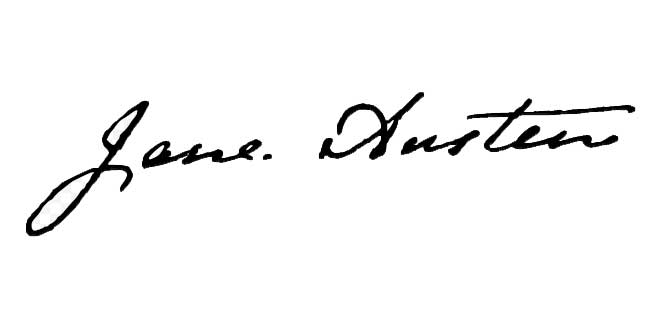 Jane. Austen